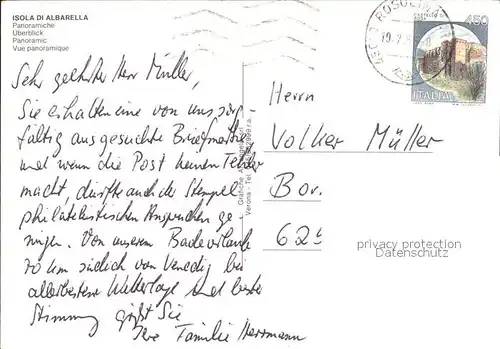 ISOLA DI ALBARELLA
Panoramiche
Überblick
Panoramic
Vue panoramique
ROSOLINA
450
ITALIA
Sehr geehrter Herr Müller,
Sie erhalten eine von uns sorg-
fältig ausgesuchte Briefmarke
und wenn die Post keinen Fehler
macht, dürfte auch der Stempel
philatelistischen Ansprüchen ge-
nügen. Von unserem Badeurlaub
70 km südlich von Venedig bei
allerbester Wetterlage und bester
Stimmung grüßt Sie
Ihre Familie Herrmann
Verona - Tel.
Herrn
Volker Müller
Bor
625
privacy protection
Datenschutz